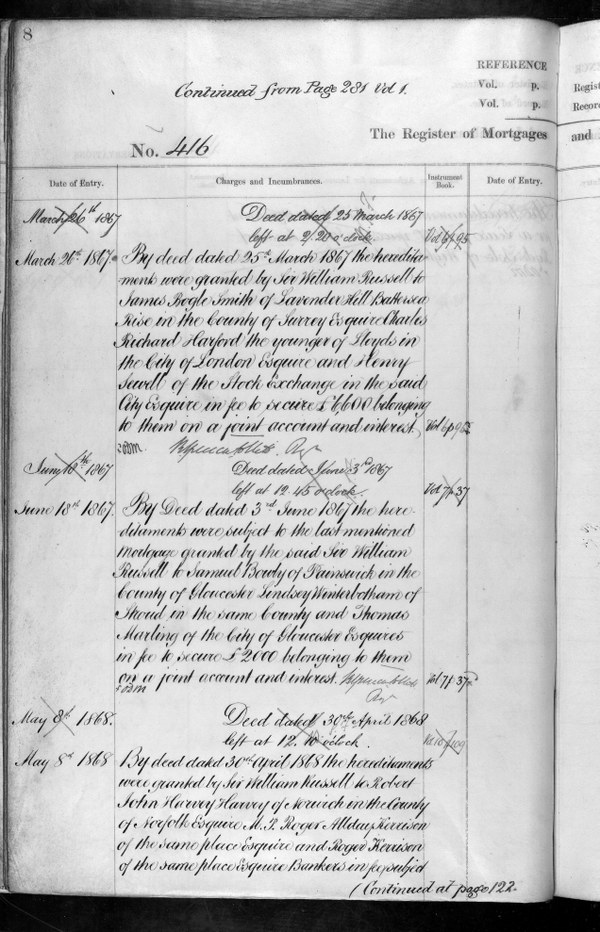 8
REFERENCE
Vol. p.
Vol. p.
Continued from Page 281 Vol 1.
The Register of Mortgages
and
No. 416
Date of Entry.
Charges and Incumbrances.
Instrument Book.
Date of Entry.
March 26th 1867
Deed dated 25 March 1867
left at 2/20 o'clock.
Vol 6 p 95
March 26th 1867.
By deed dated 25th March 1867 the heredita-
ments were granted by Sir William Russell to
James Bogle Smith of Lavender Hill Battersea
Rise in the County of Surrey Esquire Charles
Richard Harford the younger of Lloyds in
the City of London Esquire and Henry
Sewell of the Stock Exchange in the said
City Esquire in fee to secure £6600 belonging
to them on a joint account and interest.
Vol 6 p 95
June 18th 1867
Deed dated June 3rd 1867
left at 12.45 o'clock.
Vol 7 p 37
June 18th 1867.
By Deed dated 3rd June 1867 the here-
ditaments were subject to the last mentioned
Mortgage granted by the said Sir William
Russell to Samuel Bowly of Painswick in the
County of Gloucester Lindsey Winterbotham of
Stroud in the same County and Thomas
Marling of the City of Gloucester Esquires
in fee to secure £2000 belonging to them
on a joint account and interest.
Vol 7 p 37
May 8th 1868.
Deed dated 30th April 1868
left at 12.10 o'clock.
Vol 10 p 109
May 8th 1868
By deed dated 30th April 1868 the hereditaments
were granted by Sir William Russell to Robert
John Harvey Harvey of Norwich in the County
of Norfolk Esquire M.P. Roger Allday Kerrison
of the same place Esquire and Roger Kerrison
of the same place Esquire Bankers in fee subject
(Continued at page 122.